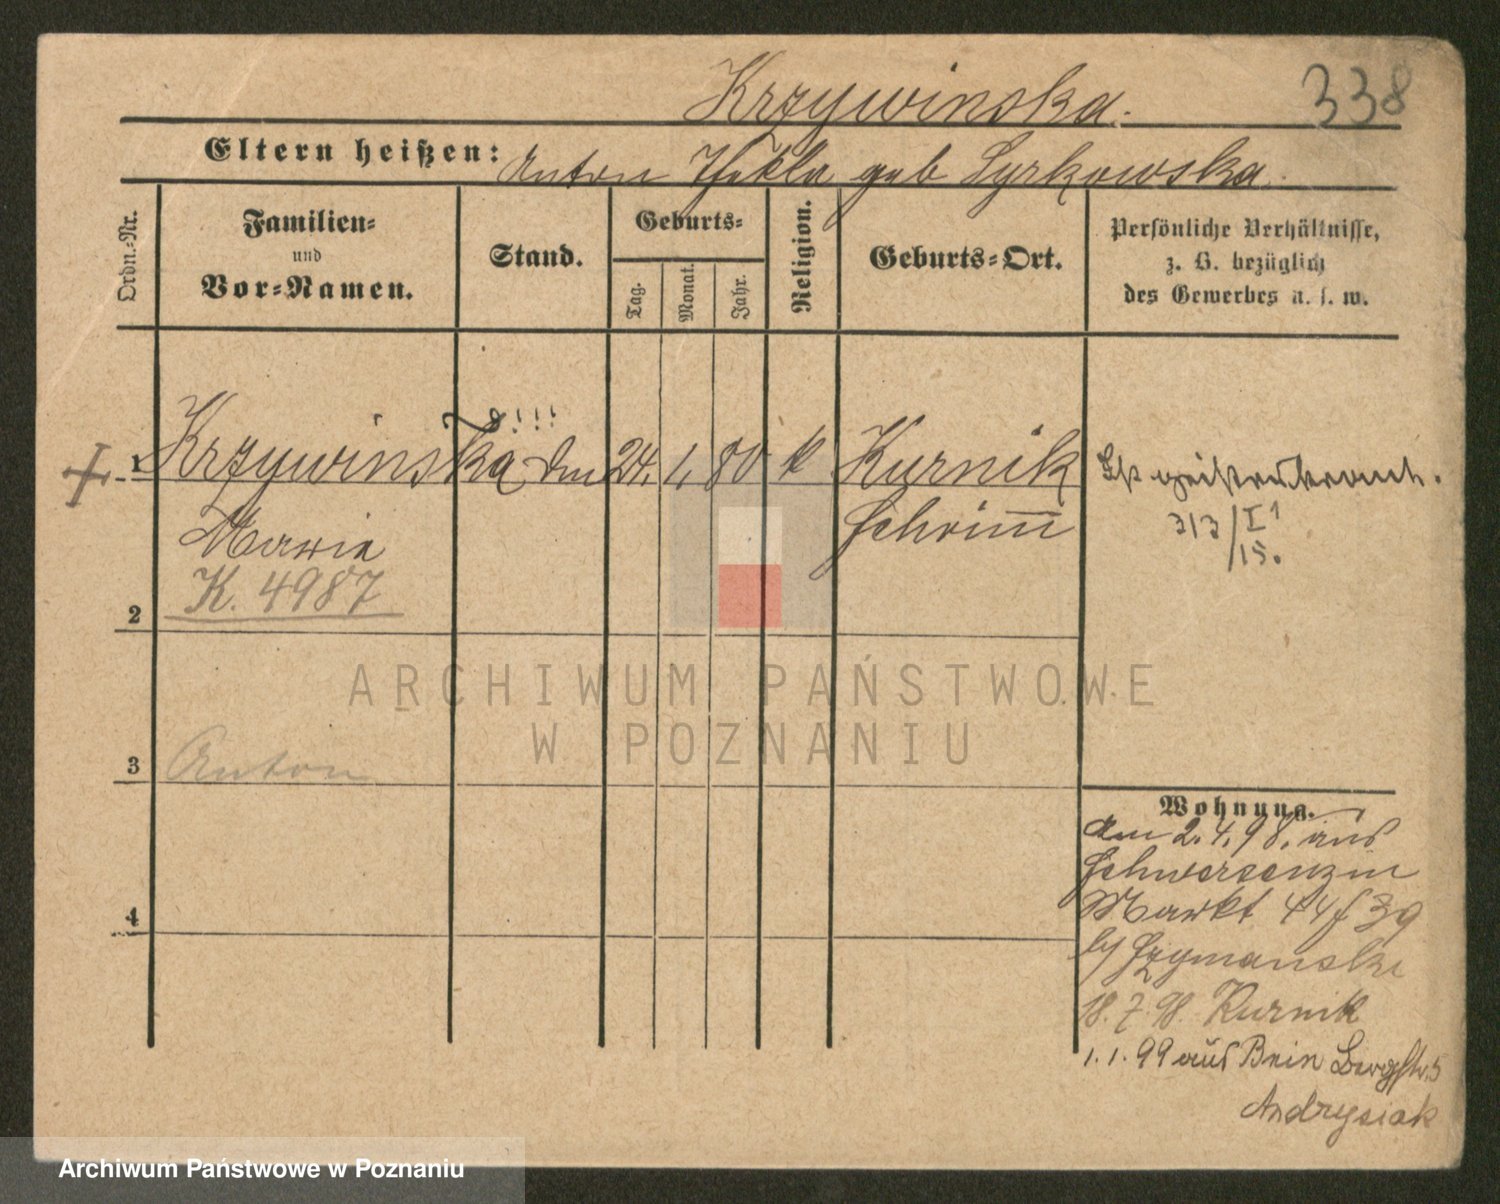 Krzywinska.
338
Eltern heißen: Anton Thekla geb Syrkowska.
Ordn.-Nr.
Familien-
und
Vor-Namen.
Stand.
Geburts-
Tag.
Monat.
Jahr.
Religion.
Geburts-Ort.
Persönliche Verhältnisse,
z. B. bezüglich
des Gewerbes u. s. w.
1 Krzywinska 24. 1. 80 k Kurnik
Ist geisteskrank.
Marie
Schrimm
313/I
15.
K. 4987
2
3 Anton
4
Wohnung.
Am 2.4.98. aus
Schwersenz in
Markt 44 39
by Szymanski
18.7.98. Kurnik
1.1.99 aus Bnin Bergstr. 5
Andrysiak
ARCHIWUM PAŃSTWOWE
W POZNANIU
Archiwum Państwowe w Poznaniu